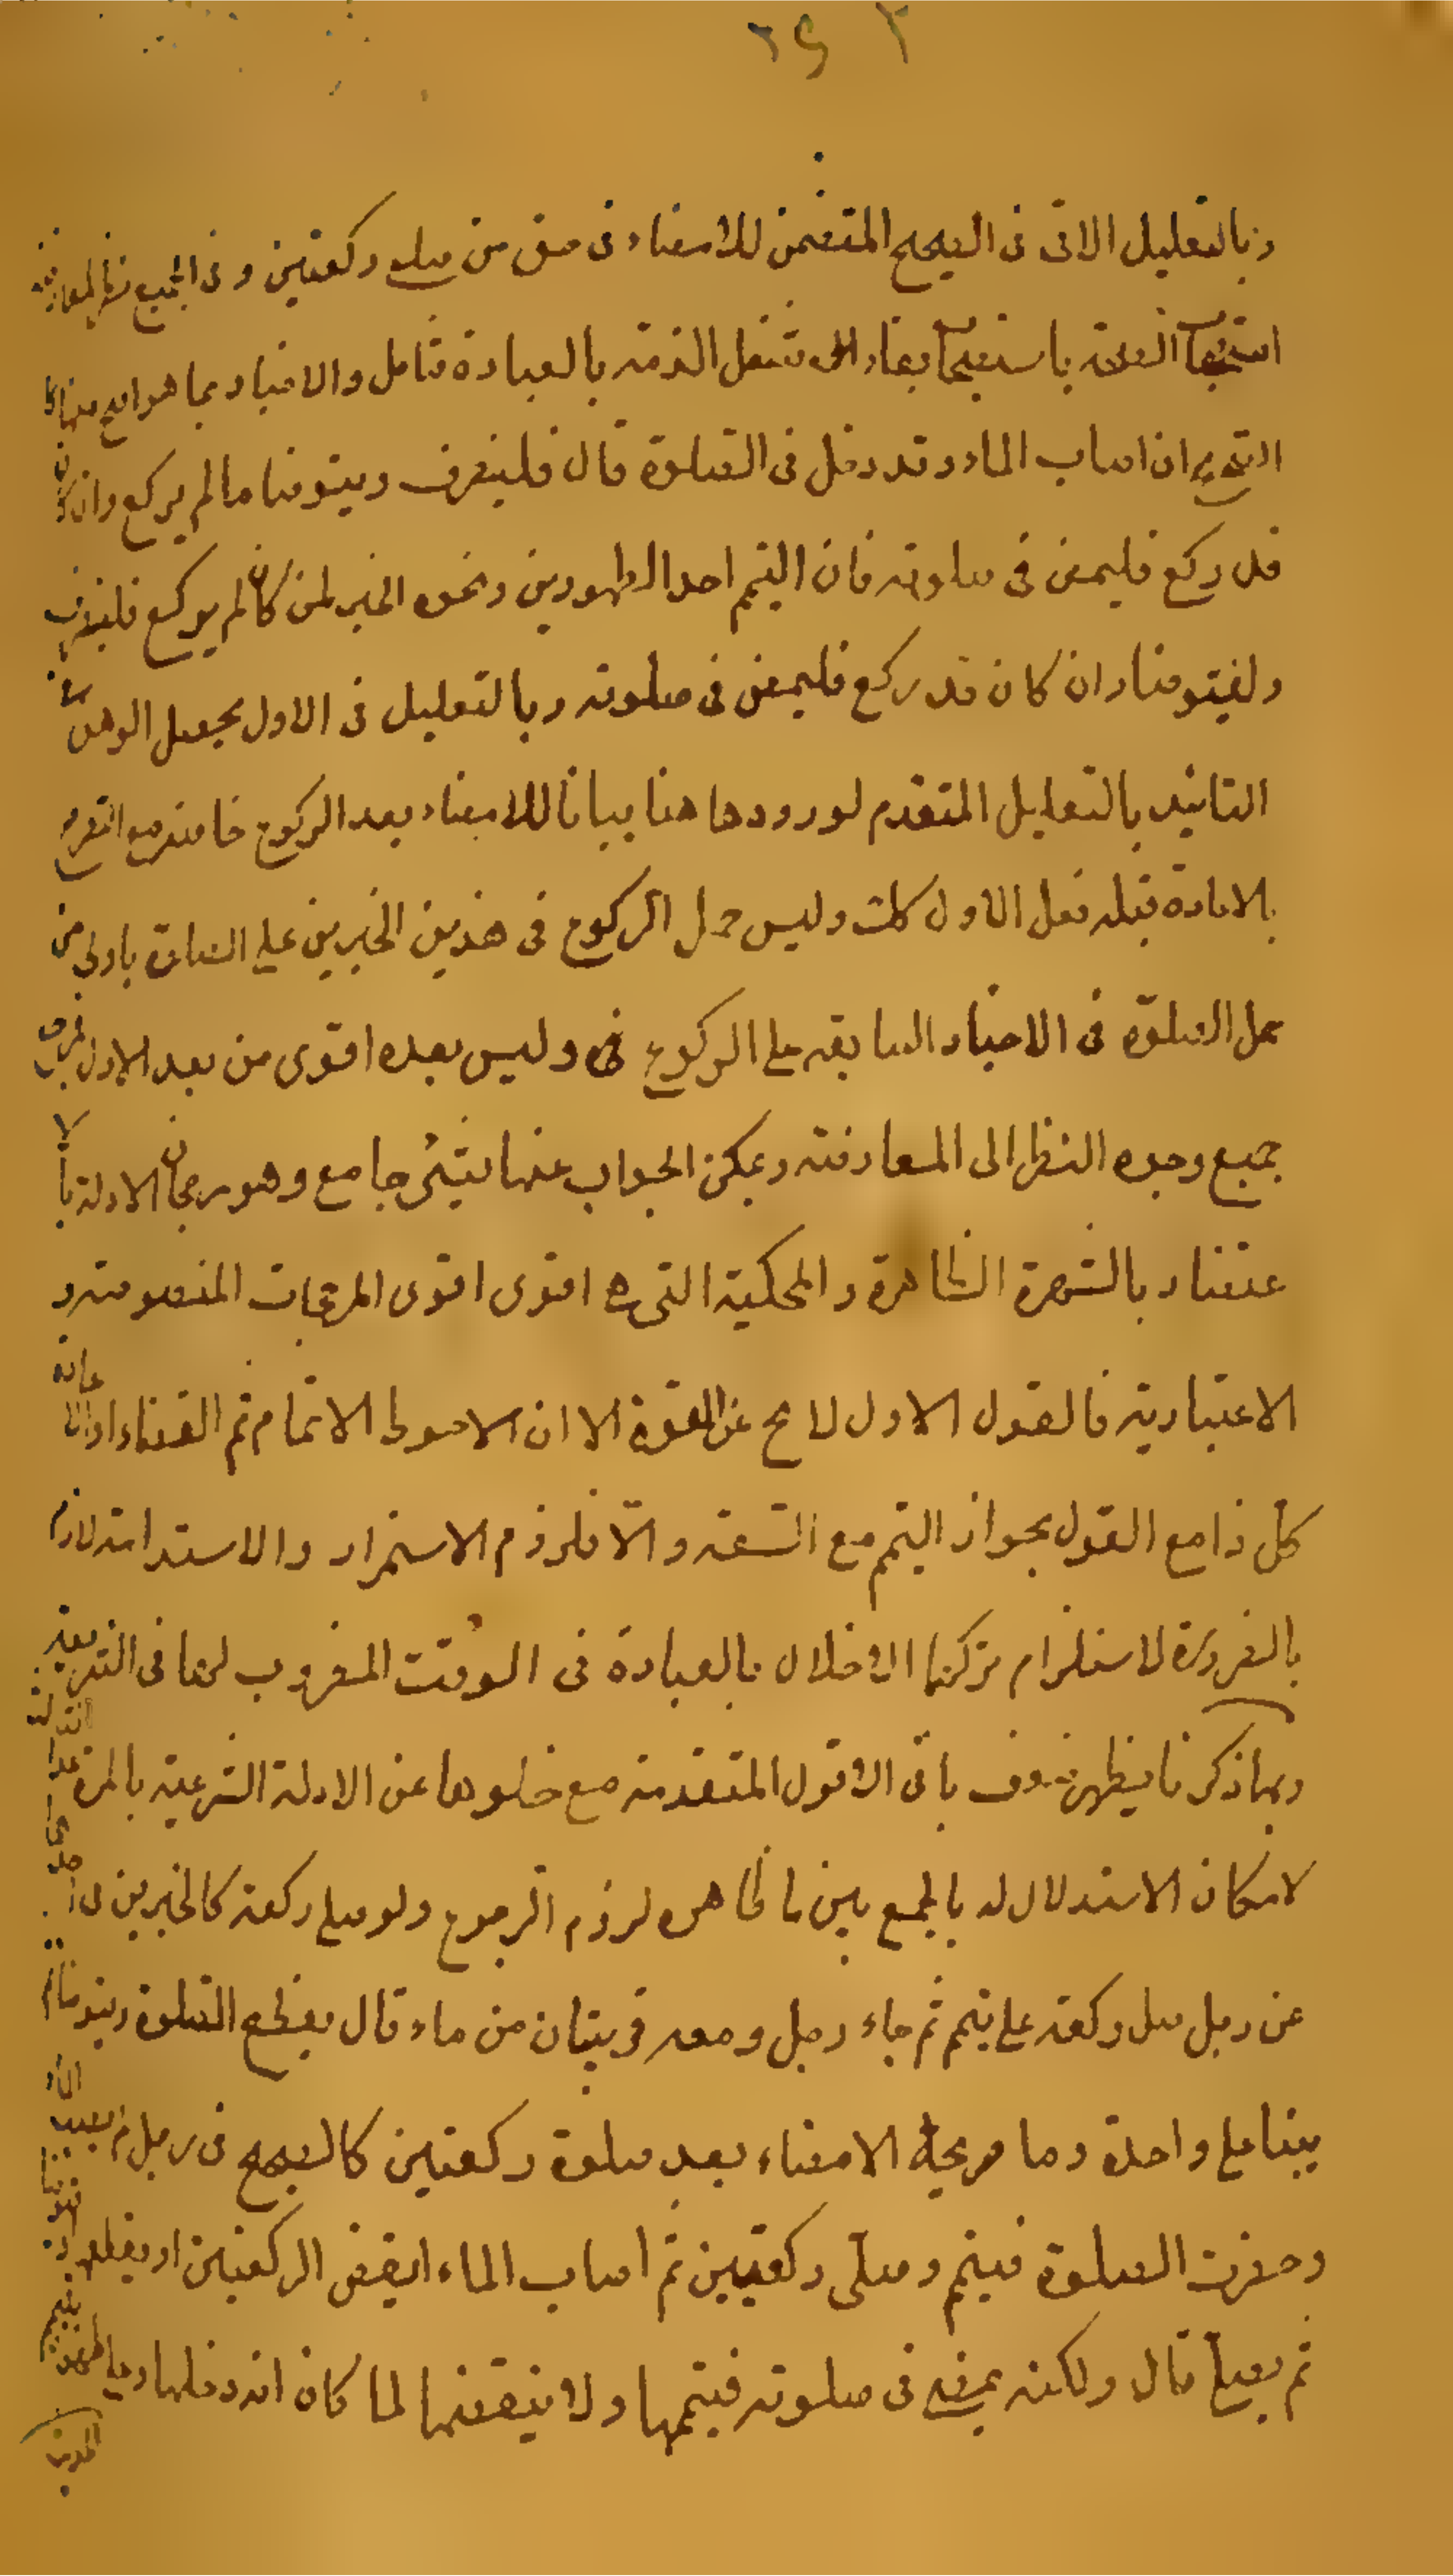 وبالتعليل الاتى فى الصحيح المتضمن للامضاء فى حق من صلى ركعتين وفى الجميع نظر لمعارضة
استصحاب الصحة باستصحاب بقاء شغل الذمة بالعبادة فتامل والاخبار بما هو اصح منها
ان اصاب الماء وقد دخل فى الصلوة قال فلينصرف وليتوضا ما لم يركع وان كان
قد ركع فليمض فى صلوته فان التيمم احد الطهورين ونحوه الخبر لمن كان لم يركع فلينصرف
وليتوضا وان كان قد ركع فليمض فى صلوته وبالتعليل فى الاول يحصل الوهن
التائيد بالتعليل المتقدم لورودها هنا بيانا للامضاء بعد الركوع خاصة مع التصريح
بالاعادة قبله فعل الاول كك وليس حمل الركوع فى هذين الخبرين على الصلوة باولى من
حمل الصلوة فى الاخبار السابقة على الركوع وليس بعده اقوى من بعد الاول
جميع وجوه النظر الى المعارضة ويمكن الجواب عنها بشئ جامع وهو رجحان الادلة بالا
عتضاد بالشهرة الظاهرة والمحكية التى هى اقوى اقوى المرجحات المنصوصة و
الاعتبارية فالقول الاول لا يخ عن القوة الا ان الاحوط الاتمام ثم القضاء او الاعادة
كل ذا مع القول بجواز التيمم مع السعة والا فلزوم الاستمرار والاستدامة لازم
بالضرورة لاستلزام تركها الاخلال بالعبادة فى الوقت المضروب لها فى الشريعة
وبما ذكرنا يظهر ضعف باقى الاقول المتقدمة مع خلوها عن الادلة الشرعية بالمرة عدا
لامكان الاستدلال له بالجمع بين ما ظاهره لزوم الرجوع ولو صلى ركعة كالخبرين فى احدهما
عن رجل صلى ركعة على تيمم ثم جاء رجل ومعه قربتان من ماء قال يقطع الصلوة ويتوضا ثم
يبنى على واحدة وما صريحه الامضاء بعد صلوة ركعتين كالصحيح فى رجل لم يصب الماء
وحضرت الصلوة فتيمم وصلى ركعتين ثم اصاب الماء اينقض الركعتين او يقطعهما ويتوضا
ثم يصلى قال ولكنه يمضى فى صلوته فيتمها ولا ينقضها لما كان انه دخلها وهو على طهور بتيمم
الحديث